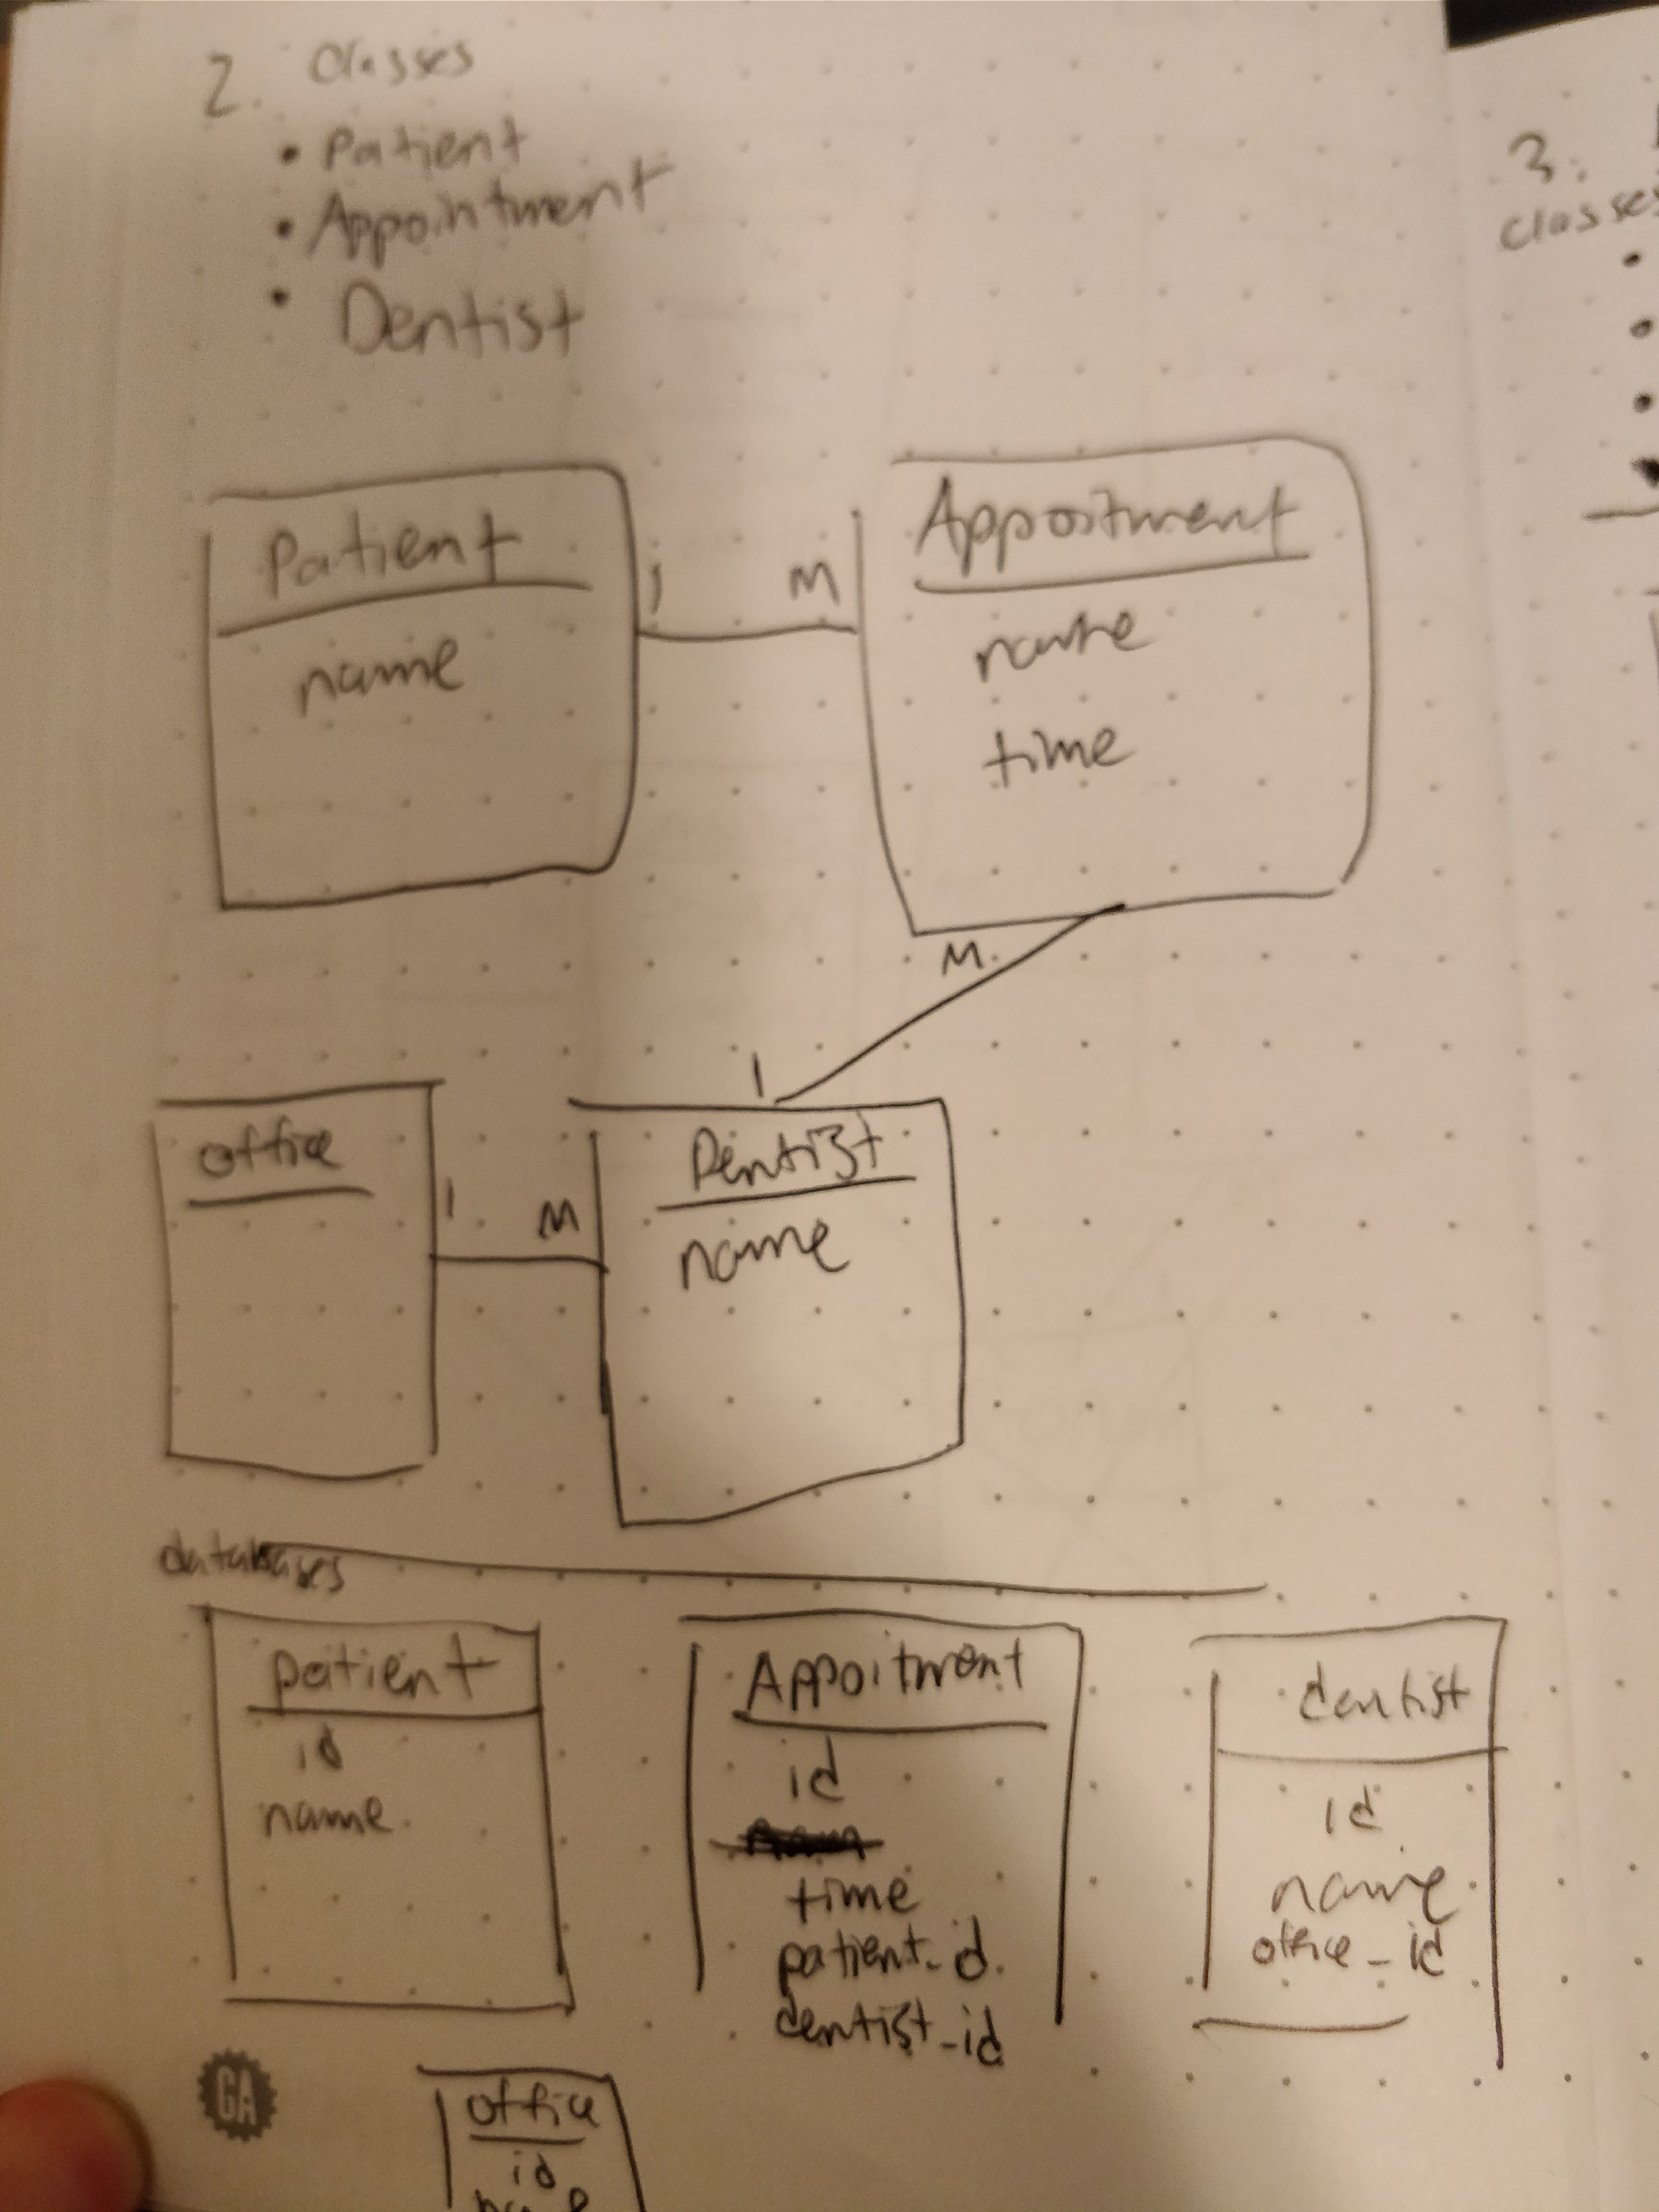 2. Classes
• Patient
• Appointment
• Dentist
Patient
name
1 M
Appoitment
name
time
M
1
office
1 M
Dentist
name
databases
patient
id
name
Appoitment
id
time
patient_id
dentist_id
dentist
id
name
office_id
GA
office
id
name
3.
classes